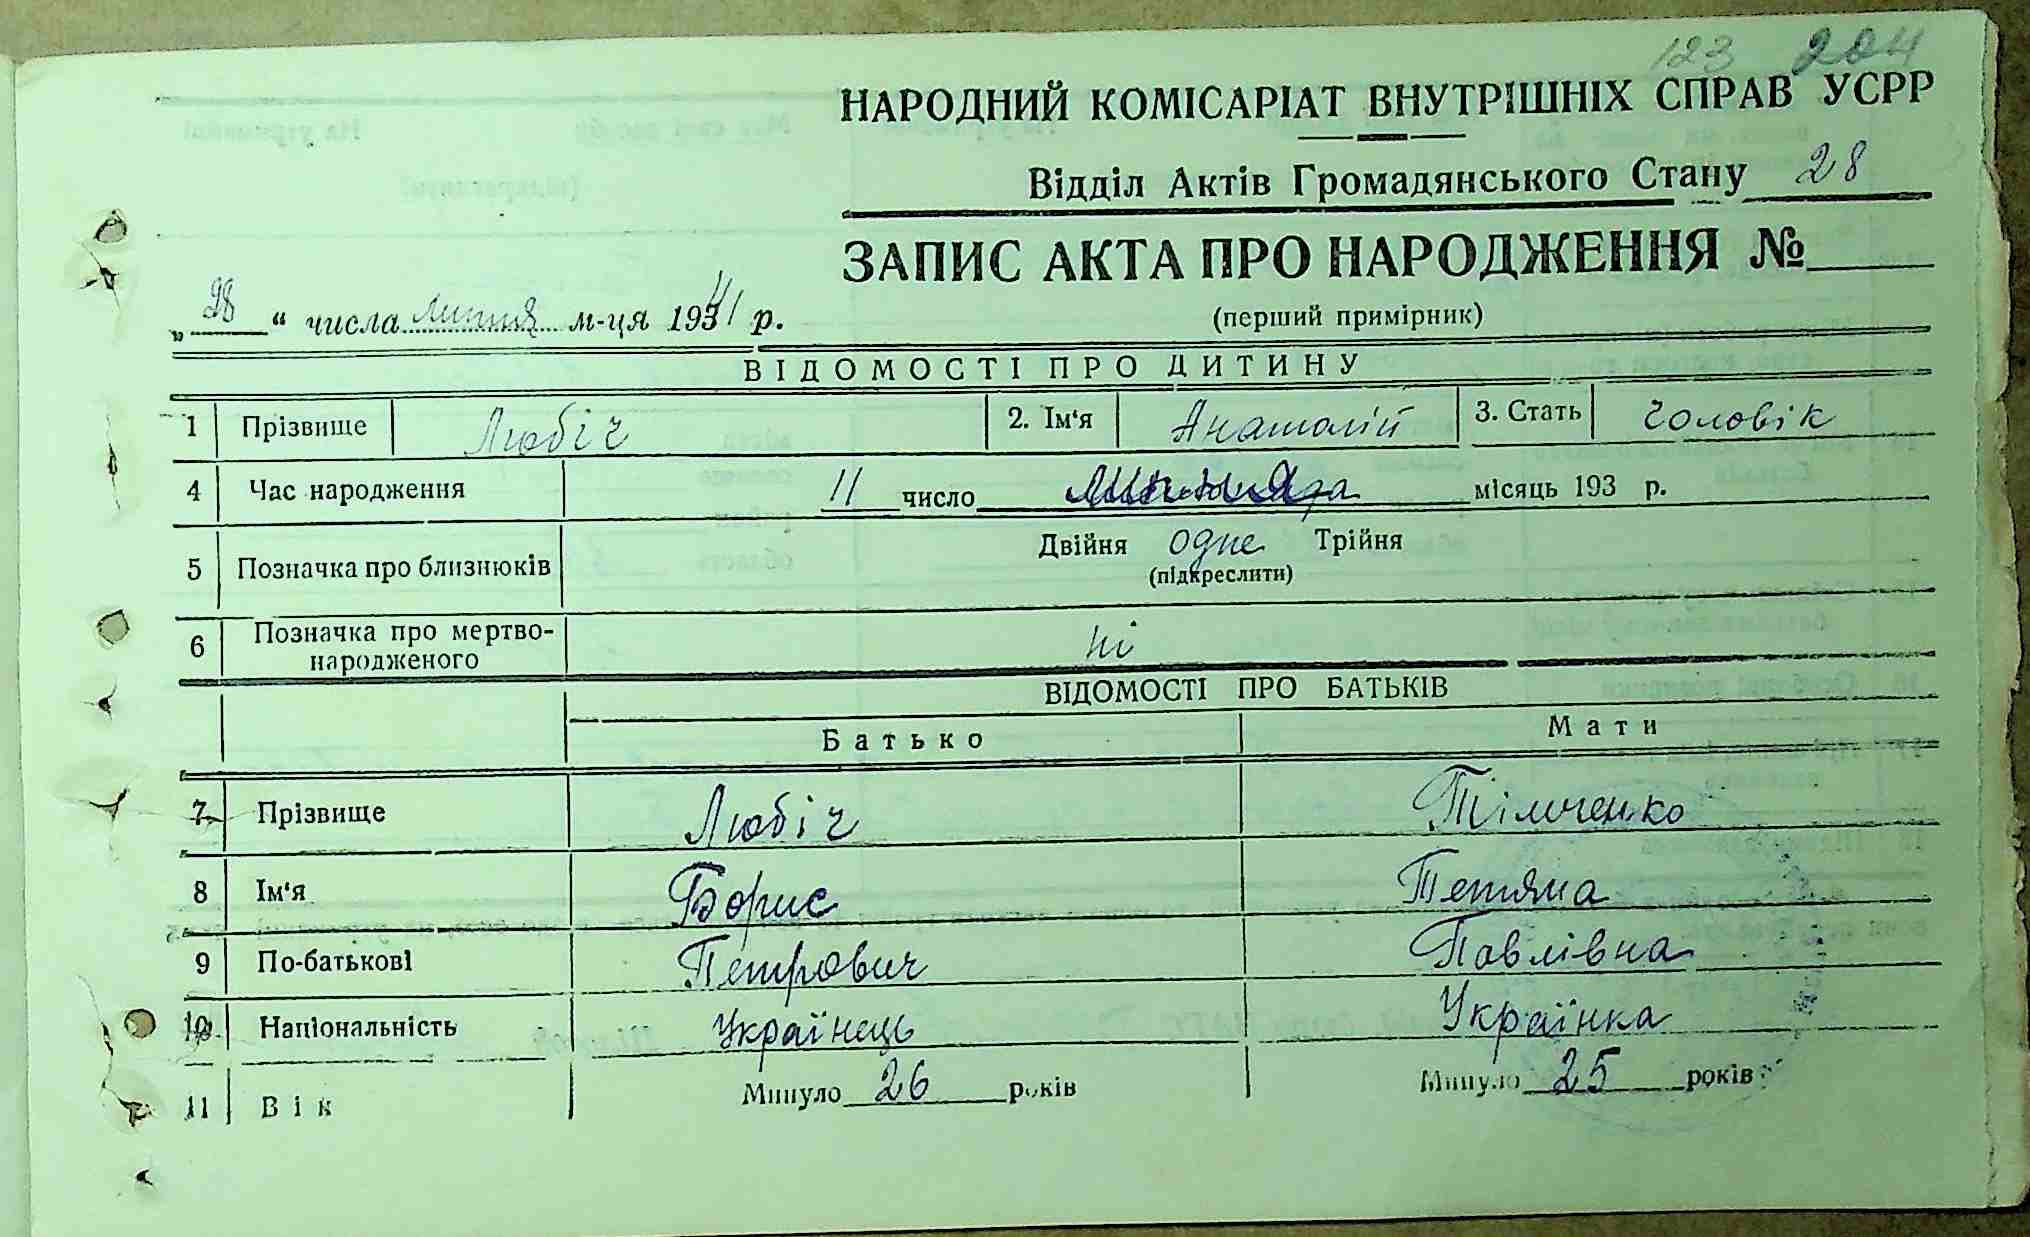 123 204
НАРОДНИЙ КОМІСАРІАТ ВНУТРІШНІХ СПРАВ УСРР
Відділ Актів Громадянського Стану 28
ЗАПИС АКТА ПРО НАРОДЖЕННЯ №
„28“ числа липня м-ця 1941 р.
(перший примірник)
ВІДОМОСТІ ПРО ДИТИНУ
1 Прізвище Любіч 2. Ім'я Анатолій 3. Стать Чоловік
4 Час народження 11 число місяць 193 р.
5 Позначка про близнюків Двійня одне Трійня
(підкреслити)
6 Позначка про мертво-
народженого ні
ВІДОМОСТІ ПРО БАТЬКІВ
Батько Мати
7 Прізвище Любіч Тімченко
8 Ім'я Борис Тетяна
9 По-батькові Петрович Павлівна
10 Національність Українець Українка
11 Вік Минуло 26 років Минуло 25 років